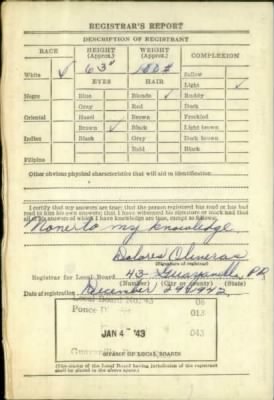 REGISTRAR'S REPORT
DESCRIPTION OF REGISTRANT
RACE HEIGHT (Approx.) WEIGHT (Approx.) COMPLEXION
63" 100#
White ✓ Sallow
EYES HAIR Light ✓
Negro Blue Blonde ✓ Ruddy
Gray Red Dark
Oriental Hazel Brown Freckled
Brown ✓ Black Light brown
Indian Black Gray Dark brown
Bald Black
Filipino
Other obvious physical characteristics that will aid in identification
I certify that my answers are true; that the person registered has read or has had
read to him his own answers; that I have witnessed his signature or mark and that
all of his answers of which I have knowledge are true, except as follows:
None to my knowledge.
Dolores Oliveras
(Signature of registrar)
Registrar for Local Board 43 Guayanilla, P.R.
(Number) (City or county) (State)
Date of registration December 29 1942
Local Board No. 43 06
Ponce 013
JAN 4 '43 043
013
(STAMP OF LOCAL BOARD)
(The stamp of the Local Board having jurisdiction of the registrant
shall be placed in the above space.)